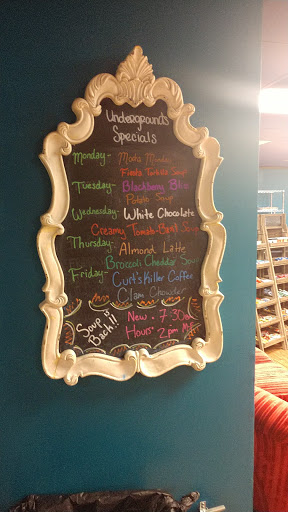 Undergrounds
Specials
Monday- Mocha Monday
Fiesta Tortilla Soup
Tuesday- Blackberry Bliss
Potato Soup
Wednesday- White Chocolate
Creamy Tomato-Basil Soup
Thursday- Almond Latte
Broccoli Cheddar Sou
Friday- Curt's Killer Coffee
Clam Chowder
Soup is Back!!
New 7:30a
Hours: 2pm